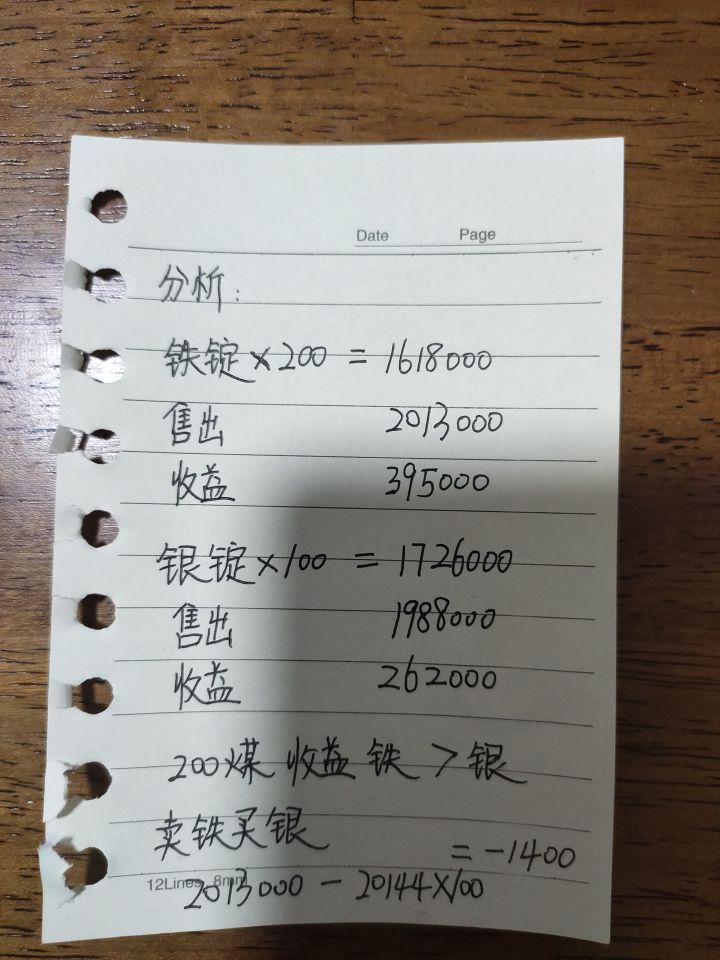 Date Page
分析:
铁锭×200 = 1618000
售出 2013000
收益 395000
银锭×100 = 1726000
售出 1988000
收益 262000
200煤 收益 铁 > 银
卖铁买银
2013000 - 20144×100 = -1400
12Lines 8mm